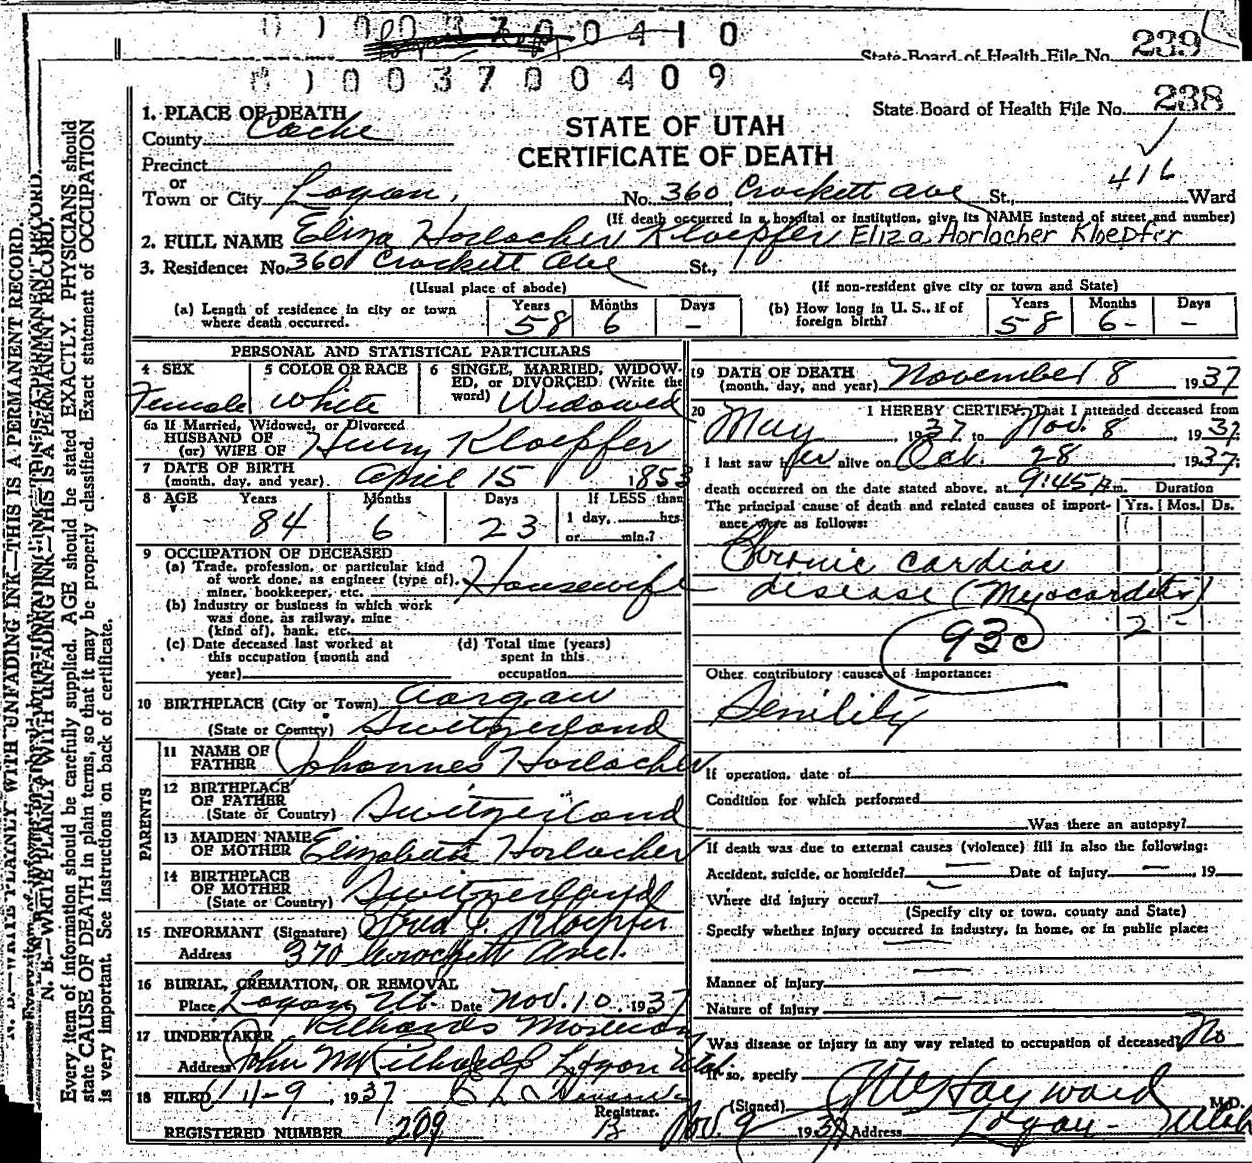 0 1 0 0 3 7 0 0 4 1 0
State Board of Health File No. 239
0 1 0 0 3 7 0 0 4 0 9
State Board of Health File No. 238
416
STATE OF UTAH
CERTIFICATE OF DEATH
1. PLACE OF DEATH
County Cache
Precinct
or
Town or City Logan, No. 360 Crockett Ave St., Ward
(If death occurred in a hospital or institution, give its NAME instead of street and number)
2. FULL NAME Eliza Horlacher Kloepfer Eliza Horlacher Kloepfer
3. Residence: No. 360 Crockett Ave St.,
(Usual place of abode) (If non-resident give city or town and State)
(a) Length of residence in city or town where death occurred. Years 58 Months 6 Days –
(b) How long in U. S., if of foreign birth? Years 58 Months 6 - Days –
PERSONAL AND STATISTICAL PARTICULARS
4 SEX Female
5 COLOR OR RACE White
6 SINGLE, MARRIED, WIDOWED, or DIVORCED (Write the word) Widowed
6a If Married, Widowed, or Divorced
HUSBAND OF
(or) WIFE OF Henry Kloepfer
7 DATE OF BIRTH
(month, day, and year) April 15 1853
8 AGE Years 84 Months 6 Days 23 If LESS than
1 day, hrs.
or min.?
9 OCCUPATION OF DECEASED
(a) Trade, profession, or particular kind
of work done, as engineer (type of), Housewife
miner, bookkeeper, etc.
(b) Industry or business in which work
was done, as railway, mine
(kind of), bank, etc.
(c) Date deceased last worked at
this occupation (month and
year)
(d) Total time (years)
spent in this
occupation
10 BIRTHPLACE (City or Town) Aargau
(State or Country) Switzerland
PARENTS
11 NAME OF
FATHER Johannes Horlacher
12 BIRTHPLACE
OF FATHER
(State or Country) Switzerland
13 MAIDEN NAME
OF MOTHER Elizabeth Horlacher
14 BIRTHPLACE
OF MOTHER
(State or Country) Switzerland
15 INFORMANT (Signature) Fred J. Kloepfer
Address 370 Crockett Ave.
16 BURIAL, CREMATION, OR REMOVAL
Place Logan Ut. Date Nov. 10, 1937
17 UNDERTAKER Richards Mortuary
Address John M Richards Logan Utah
18 FILED 11-9, 1937
Registrar.
REGISTERED NUMBER 209
19 DATE OF DEATH
(month, day, and year) November 8 1937
20 I HEREBY CERTIFY, That I attended deceased from
May 1937, to Nov. 8, 1937.
I last saw her alive on Oct. 28 1937;
death occurred on the date stated above, at 9:45 p.m. Duration
The principal cause of death and related causes of importance were as follows: Yrs. Mos. Ds.
Chronic cardiac
disease (Myocarditis)
93c 2 -
Other contributory causes of importance:
Senility
If operation, date of
Condition for which performed
Was there an autopsy?
If death was due to external causes (violence) fill in also the following:
Accident, suicide, or homicide? — Date of injury —, 19
Where did injury occur?
(Specify city or town, county and State)
Specify whether injury occurred in industry, in home, or in public place:
Manner of injury —
Nature of injury —
Was disease or injury in any way related to occupation of deceased? No
If so, specify
(Signed) Hayward M.D.
Nov 9 1937 Address Logan - Utah
N. B.—WRITE PLAINLY WITH UNFADING INK—THIS IS A PERMANENT RECORD.
Every item of information should be carefully supplied. AGE should be stated EXACTLY. PHYSICIANS should
state CAUSE OF DEATH in plain terms, so that it may be properly classified. Exact statement of OCCUPATION
is very important. See instructions on back of certificate.